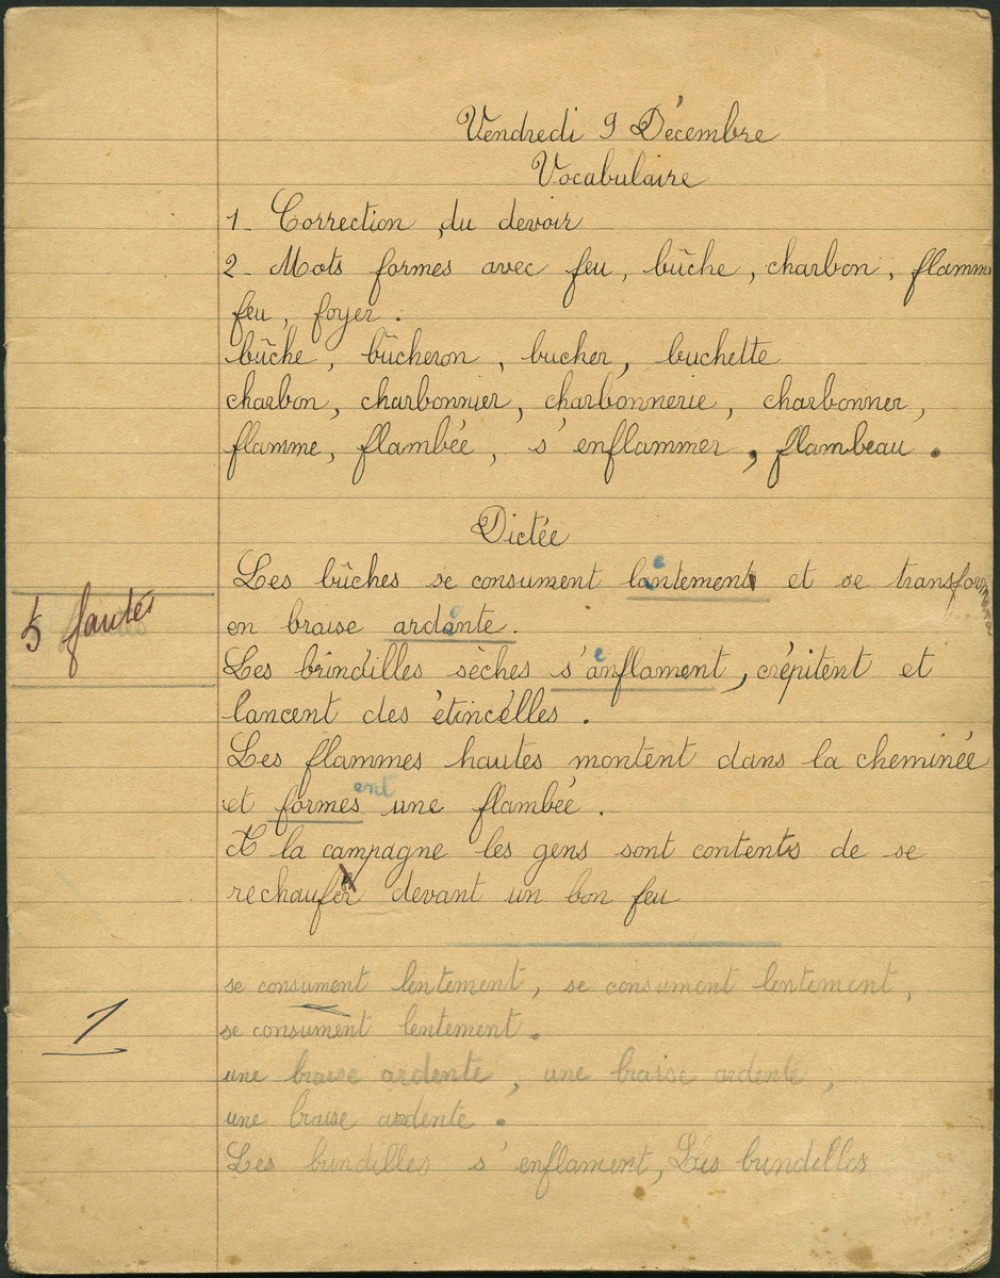 Vendredi 9 Décembre
Vocabulaire
1_ Correction du devoir
2_ Mots formes avec feu, bûche, charbon, flamm
feu, foyer.
bûche, bûcheron, bucher, buchette
charbon, charbonnier, charbonnerie, charbonner,
flamme, flambée, s'enflammer, flambeau.
Dictée
Les bûches se consument lantement et se transform
5 fautes
en braise ardante.
Les brindilles sèches s'anflament, crépitent et
lancent des étincélles.
Les flammes hautes montent dans la cheminée
ent
et formes une flambée.
A la campagne les gens sont contents de se
rechaufer devant un bon feu
se consument lentement, se consument lentement,
1
se consument lentement.
une braise ardente, une braise ardente,
une braise ardente.
Les brindilles s'enflament, Les brindilles